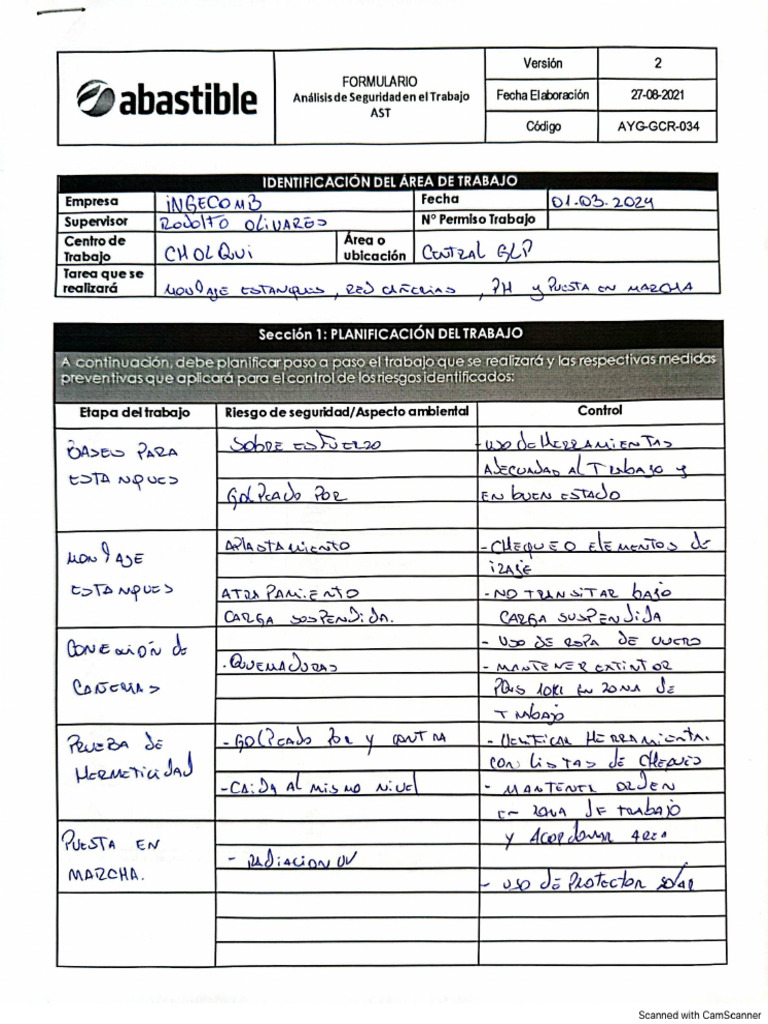 abastible
FORMULARIO
Análisis de Seguridad en el Trabajo
AST
Versión 2
Fecha Elaboración 27-08-2021
Código AYG-GCR-034
IDENTIFICACIÓN DEL ÁREA DE TRABAJO
Empresa INGECOMB Fecha 01.03.2024
Supervisor RODOLFO OLIVARES N° Permiso Trabajo
Centro de Trabajo CHOLQUI Área o ubicación CENTRAL GLP
Tarea que se realizará MONTAJE ESTANQUES, RED CAÑERIAS, PH y PUESTA EN MARCHA
Sección 1: PLANIFICACIÓN DEL TRABAJO
A continuación, debe planificar paso a paso el trabajo que se realizará y las respectivas medidas
preventivas que aplicará para el control de los riesgos identificados:
Etapa del trabajo Riesgo de seguridad/Aspecto ambiental Control
BASES PARA
ESTANQUES
SOBRE ESFUERZO
GOLPEADO POR
- USO DE HERRAMIENTAS
ADECUADAS AL TRABAJO y
EN BUEN ESTADO
MONTAJE
ESTANQUES
APLASTAMIENTO
ATRAPAMIENTO
CARGA SOSPENDIDA.
- CHEQUEO ELEMENTOS DE
IZAJE
- NO TRANSITAR BAJO
CARGA SUSPENDIDA
CONEXIÓN DE
CAÑERIAS
. QUEMADURAS
- USO DE ROPA DE CUERO
- MANTENER EXTINTOR
PQS 10KI EN ZONA DE
TRABAJO
PRUEBA DE
HERMETICIDAD
- GOLPEADO POR y CONTRA
- CAIDA AL MISMO NIVEL
- VERIFICAR HERRAMIENTA.
CON LISTAS DE CHEQUEO
- MANTENER ORDEN
EN ZONA DE TRABAJO
y ACORDONAR AREA
PUESTA EN
MARCHA.
- RADIACION UV
- USO DE PROTECTOR SOLAR
Scanned with CamScanner